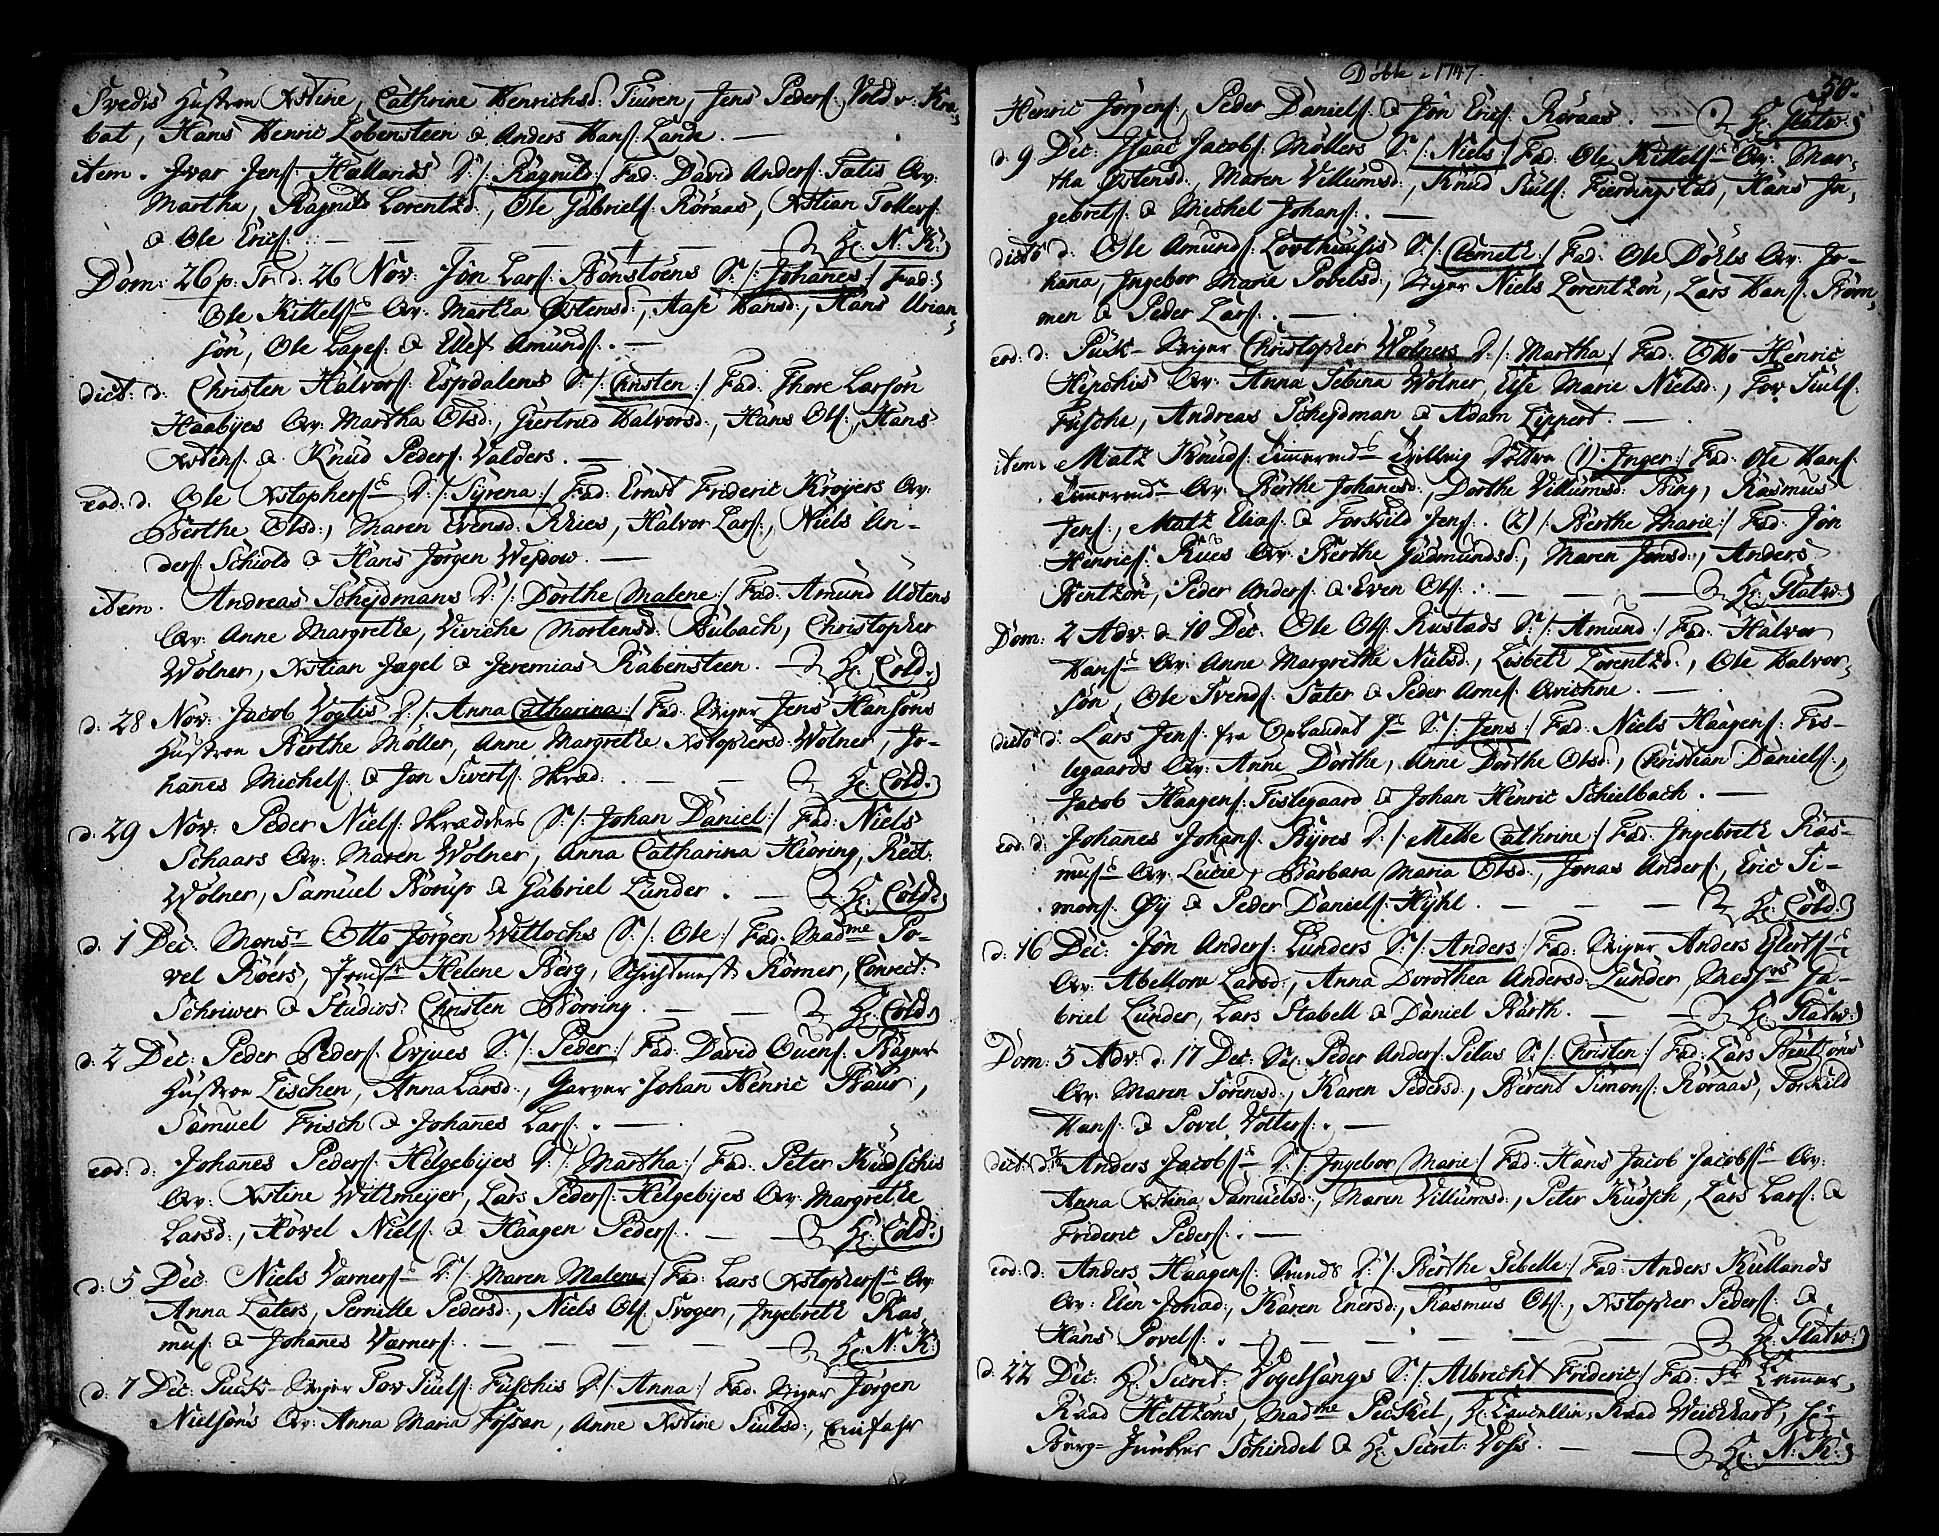 Svedis Hustroe Xstine, Cathrine Henrichsd: Tuuren, Jens Peders: Vold v. Kra-
bat, Hans Henric Lobensteen & Anders Hans: Lande. —
item. Jvar Jens: Hallands D: /: Ragnild :/ Fad: David Anders: Tatis Qv:
Martha, Ragnild Lorentzd:, Ole Gabriels: Røraas, Xstian Tollefs:
& Ole Erics: . — — — — Hr: N: K:
Dom: 26 p. Tr: d. 26 Nov: Jøn Lars: Rønstøens S: /: Johanes :/ Fad:
Ole Kittels: Qv: Martha Østensd:, Aase Hansd:, Hans Urian-
søn, Ole Lages: & Ellef Amunds: . —
dict: d: Christen Halvors: Espdalens S: /: Christen :/ Fad: Thore Larsøn
Haabyes Qv: Martha Olsd:, Giertrud Halvorsd:, Hans Ols:, Hans
Xstens: & Knud Peders: Valders. —
eod: d: Ole Xstophers: D: /: Syrena :/ Fad: Ernst Frideric Krøyers Qv:
Berthe Olsd:, Maren Evensd: Kries, Halvor Lars:, Niels An-
ders: Schiold & Hans Jørgen Wesdow. —
item. Andreas Schejdmans D: /: Dorthe Malene :/ Fad: Amund Udstens
Qv: Anne Margrethe, Viviche Mortensd: Bubach, Christopher
Wølner, Xstian Jagel & Jeremias Rabensteen. — Hr: Cold:
d: 28 Nov: Jacob Voglis D: /: Anna Catharina :/ Fad: Stiger Jens Hansøns
Hustroe Berthe Møller, Anne Margrethe Xstophersd: Wølner, Jo-
hanes Michels: & Jøn Siverts: Skræd: . — — Hr: Cold:
d: 29 Nov: Peder Niels: Skrædders S: /: Johan Daniel :/ Fad: Niels
Schaars Qv: Maren Wolner, Anna Catharina Hiøring, Rect:
Wølner, Samuel Borup & Gabriel Lunder. — Hr: Cold:
d: 1 Dec: Monsr Otto Jørgen Wittochs S: /: Ole :/ Fad: Madme Po-
vel Røers, Helene Berg, Rømer, Conrect:
Schriwer & Studios: Christen Børring. — — Hr: Cold:
d: 2 Dec: Peder Peders: Evjues S: /: Peder :/ Fad: David Ovens: Bager
Hustroe Lischen, Anna Larsd:, Garver Johan Henric Baur,
Samuel Frisch & Johanes Lars: . —
eod: d: Johanes Peders: Helgebyes D: /: Martha :/ Fad: Peter Kudschis
Qv: Xstine Withmeyer, Lars Peders: Helgebyes Qv: Margrethe
Larsd:, Hovel Niels: & Haagen Peders: . — — Hr: Cold:
d: 5 Dec: Niels Værners: D: /: Maren Malene :/ Fad: Lars Xstophers: Qv:
Anna Laters, Pernille Pedersd:, Niels Ols: Svoger, Ingebreth Ras-
mus: & Johanes Værners: . — — — — Hr: N: K:
d: 7 Dec: Stiger Tov Juls: Fuschis D: /: Anna :/ Fad: Stiger Jørgen
Nielsøns Qv: Anna Maria Fossan, Anne Xstine Juulsd:, Einfahr
Døbte i 1747.
50.
Henric Jørgens:, Peder Daniels: & Jøn Erics: Røraas. — Hr: Flatw:
d: 9 Dec: Isaac Jacobs: Møllers S: /: Niels :/ Fad: Ole Kittels: Qv: Mar-
tha Østensd:, Maren Villumsd:, Knud Juls: Fierdingstad, Hans In-
gebrets: & Michel Johans: . —
dicto d: Ole Amunds: Lovthuusis S: /: Clemet :/ Fad: Ole Døhls Qv: Jo-
hana, Ingebor Marie Povelsd:, Stiger Niels Lorentzøn, Lars Hans: Røm-
men & Peder Lars: . —
eod: d: Stiger Christopher Wolners D: /: Martha :/ Fad: Otto Henric
Hipschis Qv: Anna Sebina Wolner, Else Marie Nielsd:, Tov Juls:
Fusche, Andreas Schejdman & Adam Lippert. —
item. Matz Knuds: Tvilling Døttre (1) /: Inger :/ Fad: Ole Hans:
Qv: Berthe Johanesd:, Dorthe Villumsd: Bing, Rasmus
Jens:, Matz Elias: & Torkild Jens: . (2) /: Berthe Marie :/ Fad: Jøn
Henrics: Rues Qv: Berthe Gudmundsd:, Maren Jensd:, Anders
Bentzøn, Peder Anders: & Even Ols: . — — Hr: Flatw:
Dom: 2 Adv: d: 10 Dec: Ole Ols: Rustads S: /: Amund :/ Fad: Halvor
Hans: Qv: Anne Margrethe Nielsd:, Lisbeth Lorentzd:, Ole Halvor-
søn, Ole Svends: Sater & Peder Arnes: Qvichne. —
dicto d: Lars Jens: fra Oplandet S: /: Jens :/ Fad: Niels Haagens: Fis-
legaards Qv: Anne Dorthe, Anne Dorthe Olsd:, Christian Daniels:,
Jacob Haagens: Fislegaard & Johan Henric Schielbach. —
eod: d: Johanes Johans: Byres D: /: Mette Cathrine :/ Fad: Ingebreth Ras-
mus: Qv: Lucie, Barbara Maria Olsd:, Jonas Anders:, Eric Si-
mons: Øy & Peder Daniels: Hyhl. — — — Hr: Cold:
d: 16 Dec: Jøn Anders: Lunders S: /: Anders :/ Fad: Stiger Anders Eilerts:
Qv: Abellone Larsd:, Anna Dorothea Andersd: Lunder, Messrs Ga-
briel Lunder, Lars Stabell & Daniel Barth. — — Hr: Flatw:
Dom: 3 Adv: d: 17 Dec: Peder Anders: Pilas S: /: Christen :/ Fad: Lars Bentzøns
Qv: Maren Sørensd:, Karen Pedersd:, Berent Simons: Røraas, Torkild
Hans: & Povel Volters: . —
dict: d: Anders Jacobs: D: /: Ingebor Marie :/ Fad: Hans Jacob Jacobs: Qv:
Anna Xstina Samuelsd:, Maren Villumsd:, Peter Kudsch, Lars Lars: &
Frideric Peders: . —
eod: d: Anders Haagens: Strunds D: /: Berthe Sibelle :/ Fad: Anders Kullands
Qv: Elen Jonæd:, Karen Enersd:, Rasmus Ols:, Xstopher Peders: &
Hans Povels: . — — — — Hr: Flatw:
d: 22 Dec: Hr: Secret: Vogelsangs S: /: Albrecht Frideric :/ Fad: Fr Cammer-
Raad Heltzens, Madme Pechel, Hr: Cancellie-Raad Weichhart,
Berg-Juncker Schindel & Hr: Secret: Voss. — — Hr: N: K: